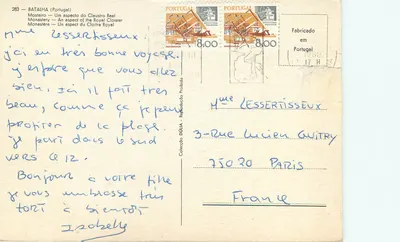 283 - BATALHA (Portugal)
Mosteiro - Um aspecto do Claustro Real
Monastery - An aspect of the Royal Cloister
Monastère - Un aspect du Cloître Royal
Mme Lessertisseux,
j'ai eu très bonne voyage.
j'espère que vous allez
bien. Ici il fait très
beau, comme ça je peux
profiter de la plage.
je part dans le sud
vers le 12.
Bonjour à votre fille
je vous embrasse très
fort à bientôt
Isabelle
PORTUGAL
8.00
PORTUGAL
8.00
Fabricado
em
Portugal
Mme LESSERTISSEUX
3-Rue Lucien GUITRY
75020 PARIS
France